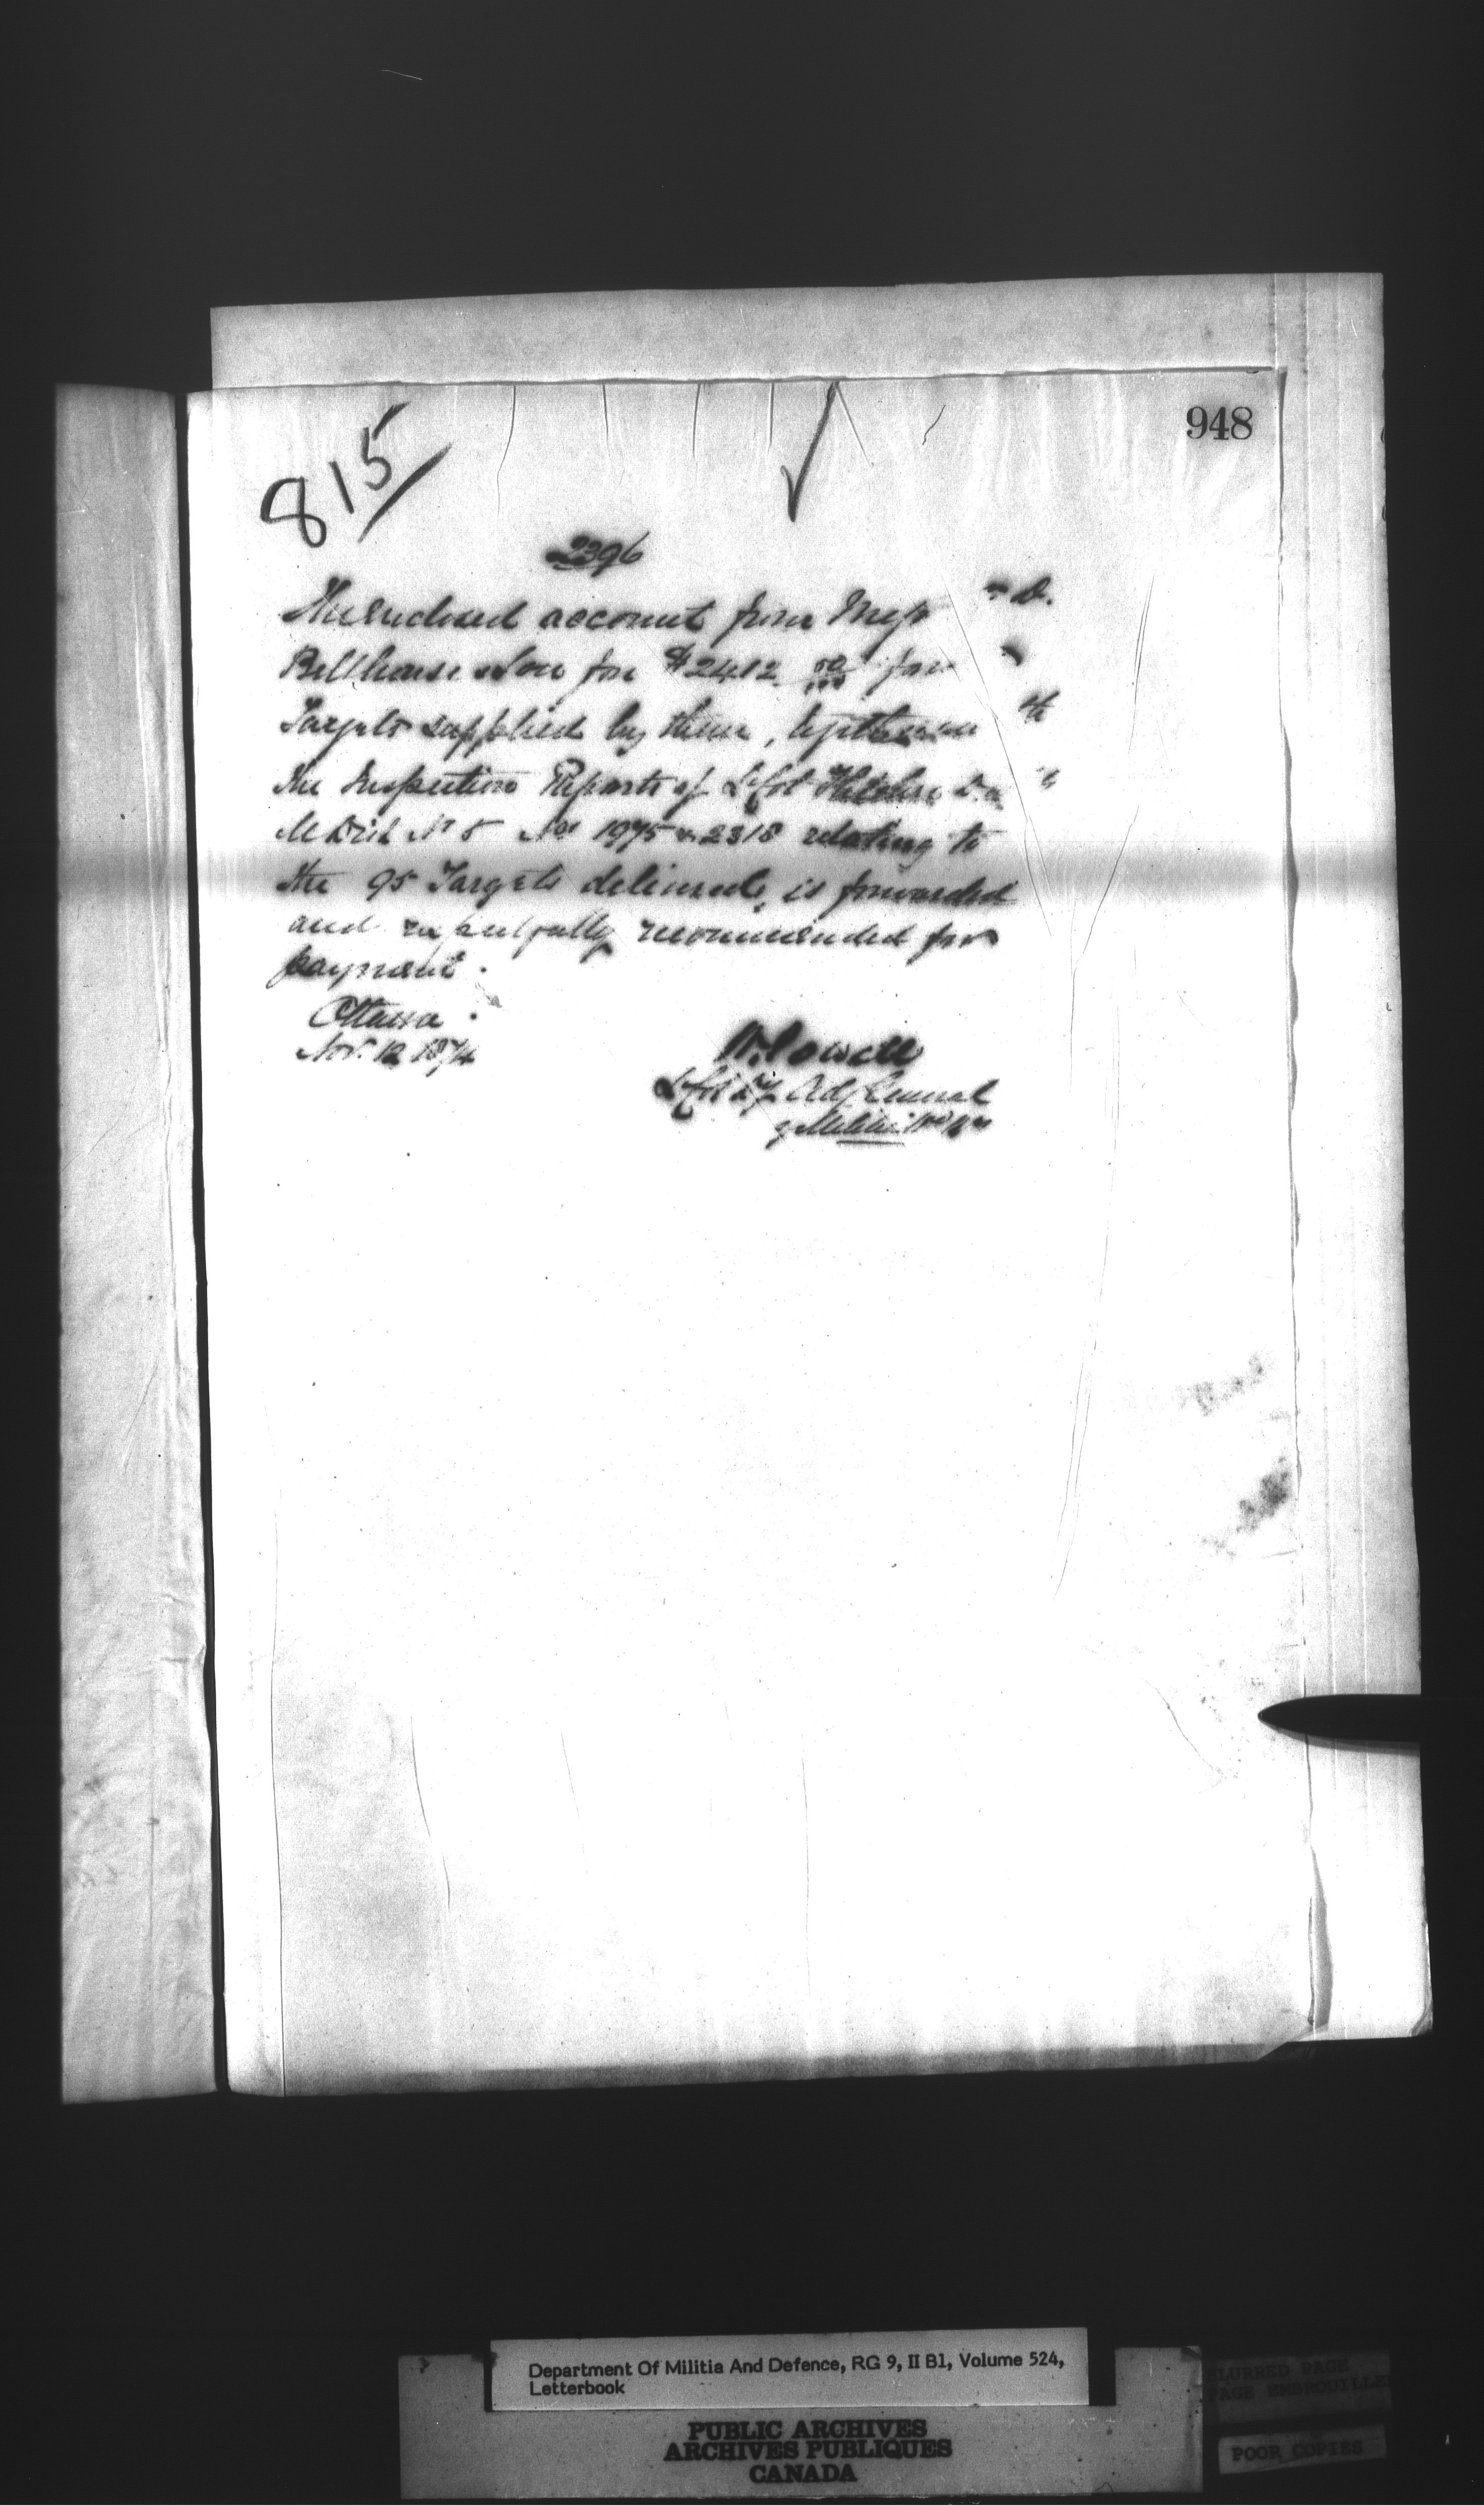 948
815
2396
The enclosed account from Messr
Bellhouse & Son for $2412 50/100 for
Targets supplied by them, together
the Inspection Reports of Lt Col D.A.
M Dist No 5 Nos 1975 & 2318 relating to
the 95 Targets delivered, is forwarded
and respectfully recommended for
payment.
Ottawa
Nov. 12 1874
W. Powell
Lt Col Adj General
of Militia
Department Of Militia And Defence, RG 9, II B1, Volume 524,
Letterbook
PUBLIC ARCHIVES
ARCHIVES PUBLIQUES
CANADA
BLURRED PAGE
PAGE EMBROUILLEE
POOR COPIES